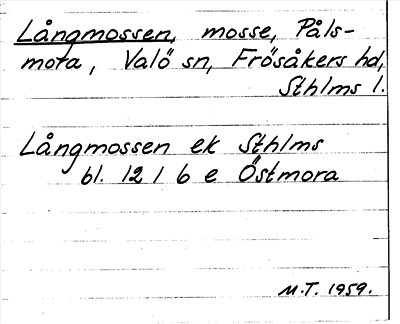 Långmossen, mosse, Påls-
mora, Valö sn, Frösåkers hd,
Sthlms l.
Långmossen ek Sthlms
bl. 12 I 6 e Östmora
M.T. 1959.